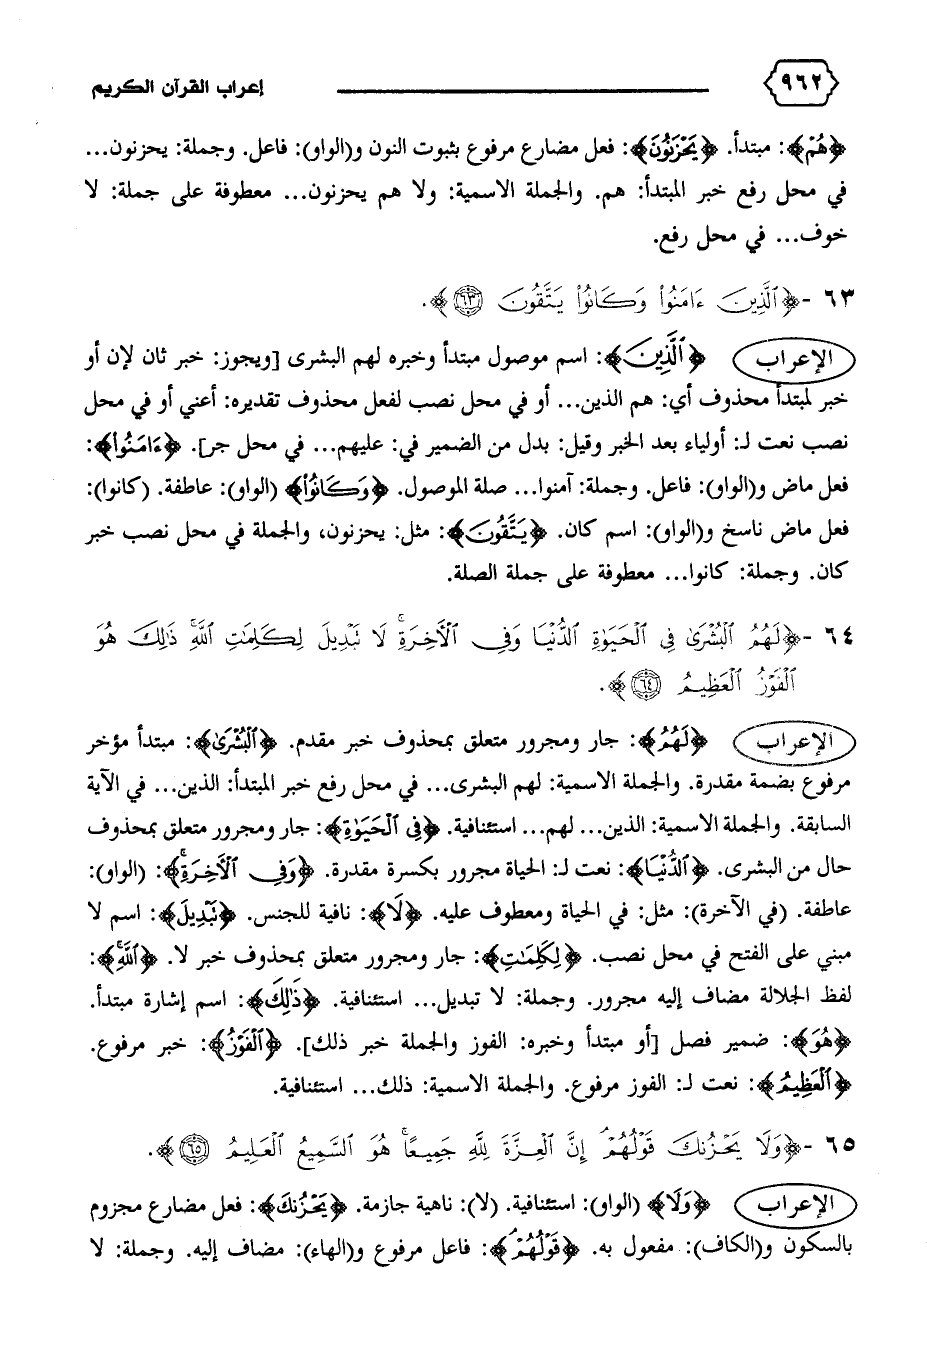 ٩٦٢ إعراب القرآن الكريم
﴿هُمْ﴾: مبتدأ. ﴿يَحْزَنُونَ﴾: فعل مضارع مرفوع بثبوت النون و(الواو): فاعل. وجملة: يحزنون...
في محل رفع خبر المبتدأ: هم. والجملة الاسمية: ولا هم يحزنون... معطوفة على جملة: لا
خوف... في محل رفع.
٦٣ -﴿ٱلَّذِينَ ءَامَنُوا۟ وَكَانُوا۟ يَتَّقُونَ ٦٣﴾.
الإعراب ﴿ٱلَّذِينَ﴾: اسم موصول مبتدأ وخبره لهم البشرى [ويجوز: خبر ثان لإن أو
خبر لمبتدأ محذوف أي: هم الذين... أو في محل نصب لفعل محذوف تقديره: أعني أو في محل
نصب نعت لـ: أولياء بعد الخبر وقيل: بدل من الضمير في: عليهم... في محل جر]. ﴿ءَامَنُوا۟﴾:
فعل ماض و(الواو): فاعل. وجملة: آمنوا... صلة الموصول. ﴿وَكَانُوا۟﴾ (الواو): عاطفة. (كانوا):
فعل ماض ناسخ و(الواو): اسم كان. ﴿يَتَّقُونَ﴾: مثل: يحزنون، والجملة في محل نصب خبر
كان. وجملة: كانوا... معطوفة على جملة الصلة.
٦٤ -﴿لَهُمُ ٱلْبُشْرَىٰ فِى ٱلْحَيَوٰةِ ٱلدُّنْيَا وَفِى ٱلْءَاخِرَةِ ۚ لَا تَبْدِيلَ لِكَلِمَٰتِ ٱللَّهِ ۚ ذَٰلِكَ هُوَ
ٱلْفَوْزُ ٱلْعَظِيمُ ٦٤﴾.
الإعراب ﴿لَهُمُ﴾: جار ومجرور متعلق بمحذوف خبر مقدم. ﴿ٱلْبُشْرَىٰ﴾: مبتدأ مؤخر
مرفوع بضمة مقدرة. والجملة الاسمية: لهم البشرى... في محل رفع خبر المبتدأ: الذين... في الآية
السابقة. والجملة الاسمية: الذين... لهم... استئنافية. ﴿فِى ٱلْحَيَوٰةِ﴾: جار ومجرور متعلق بمحذوف
حال من البشرى. ﴿ٱلدُّنْيَا﴾: نعت لـ: الحياة مجرور بكسرة مقدرة. ﴿وَفِى ٱلْءَاخِرَةِ ۚ﴾: (الواو):
عاطفة. (في الآخرة): مثل: في الحياة ومعطوف عليه. ﴿لَا﴾: نافية للجنس. ﴿تَبْدِيلَ﴾: اسم لا
مبني على الفتح في محل نصب. ﴿لِكَلِمَٰتِ﴾: جار ومجرور متعلق بمحذوف خبر لا. ﴿ٱللَّهِ ۚ﴾:
لفظ الجلالة مضاف إليه مجرور. وجملة: لا تبديل... استئنافية. ﴿ذَٰلِكَ﴾: اسم إشارة مبتدأ.
﴿هُوَ﴾: ضمير فصل [أو مبتدأ وخبره: الفوز والجملة خبر ذلك]. ﴿ٱلْفَوْزُ﴾: خبر مرفوع.
﴿ٱلْعَظِيمُ﴾: نعت لـ: الفوز مرفوع. والجملة الاسمية: ذلك... استئنافية.
٦٥ -﴿وَلَا يَحْزُنكَ قَوْلُهُمْ ۘ إِنَّ ٱلْعِزَّةَ لِلَّهِ جَمِيعًا ۚ هُوَ ٱلسَّمِيعُ ٱلْعَلِيمُ ٦٥﴾.
الإعراب ﴿وَلَا﴾ (الواو): استئنافية. (لا): ناهية جازمة. ﴿يَحْزُنكَ﴾: فعل مضارع مجزوم
بالسكون و(الكاف): مفعول به. ﴿قَوْلُهُمْ ۘ﴾: فاعل مرفوع و(الهاء): مضاف إليه. وجملة: لا